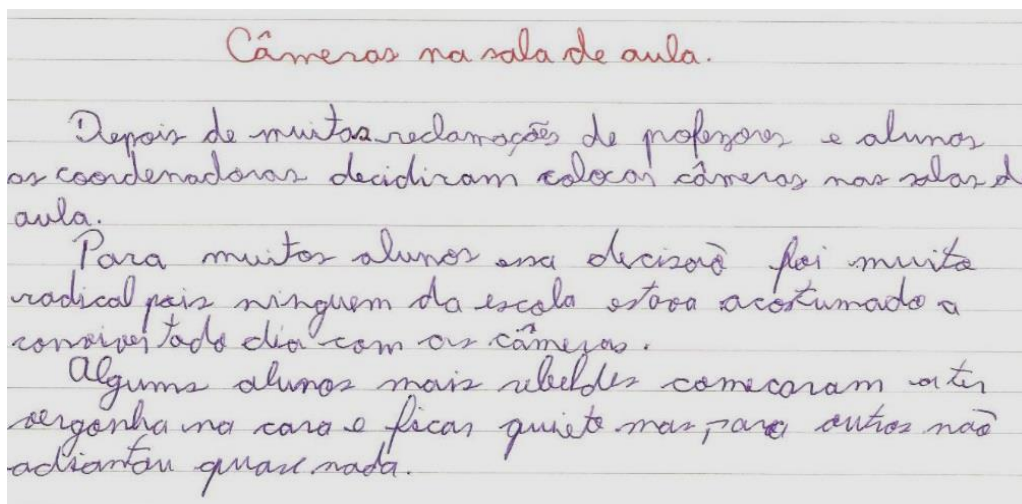 Câmeras na sala de aula.
Depois de muitas reclamações de professores e alunos
as coordenadoras decidiram colocar câmeras nas salas d
aula.
Para muitos alunos essa decisão foi muito
radical pois ninguem da escola estava acostumado a
conviver todo dia com as câmeras.
Alguns alunos mais rebeldes comecaram a ter
vergonha na cara e ficar quieto mas para outros não
adiantou quase nada.